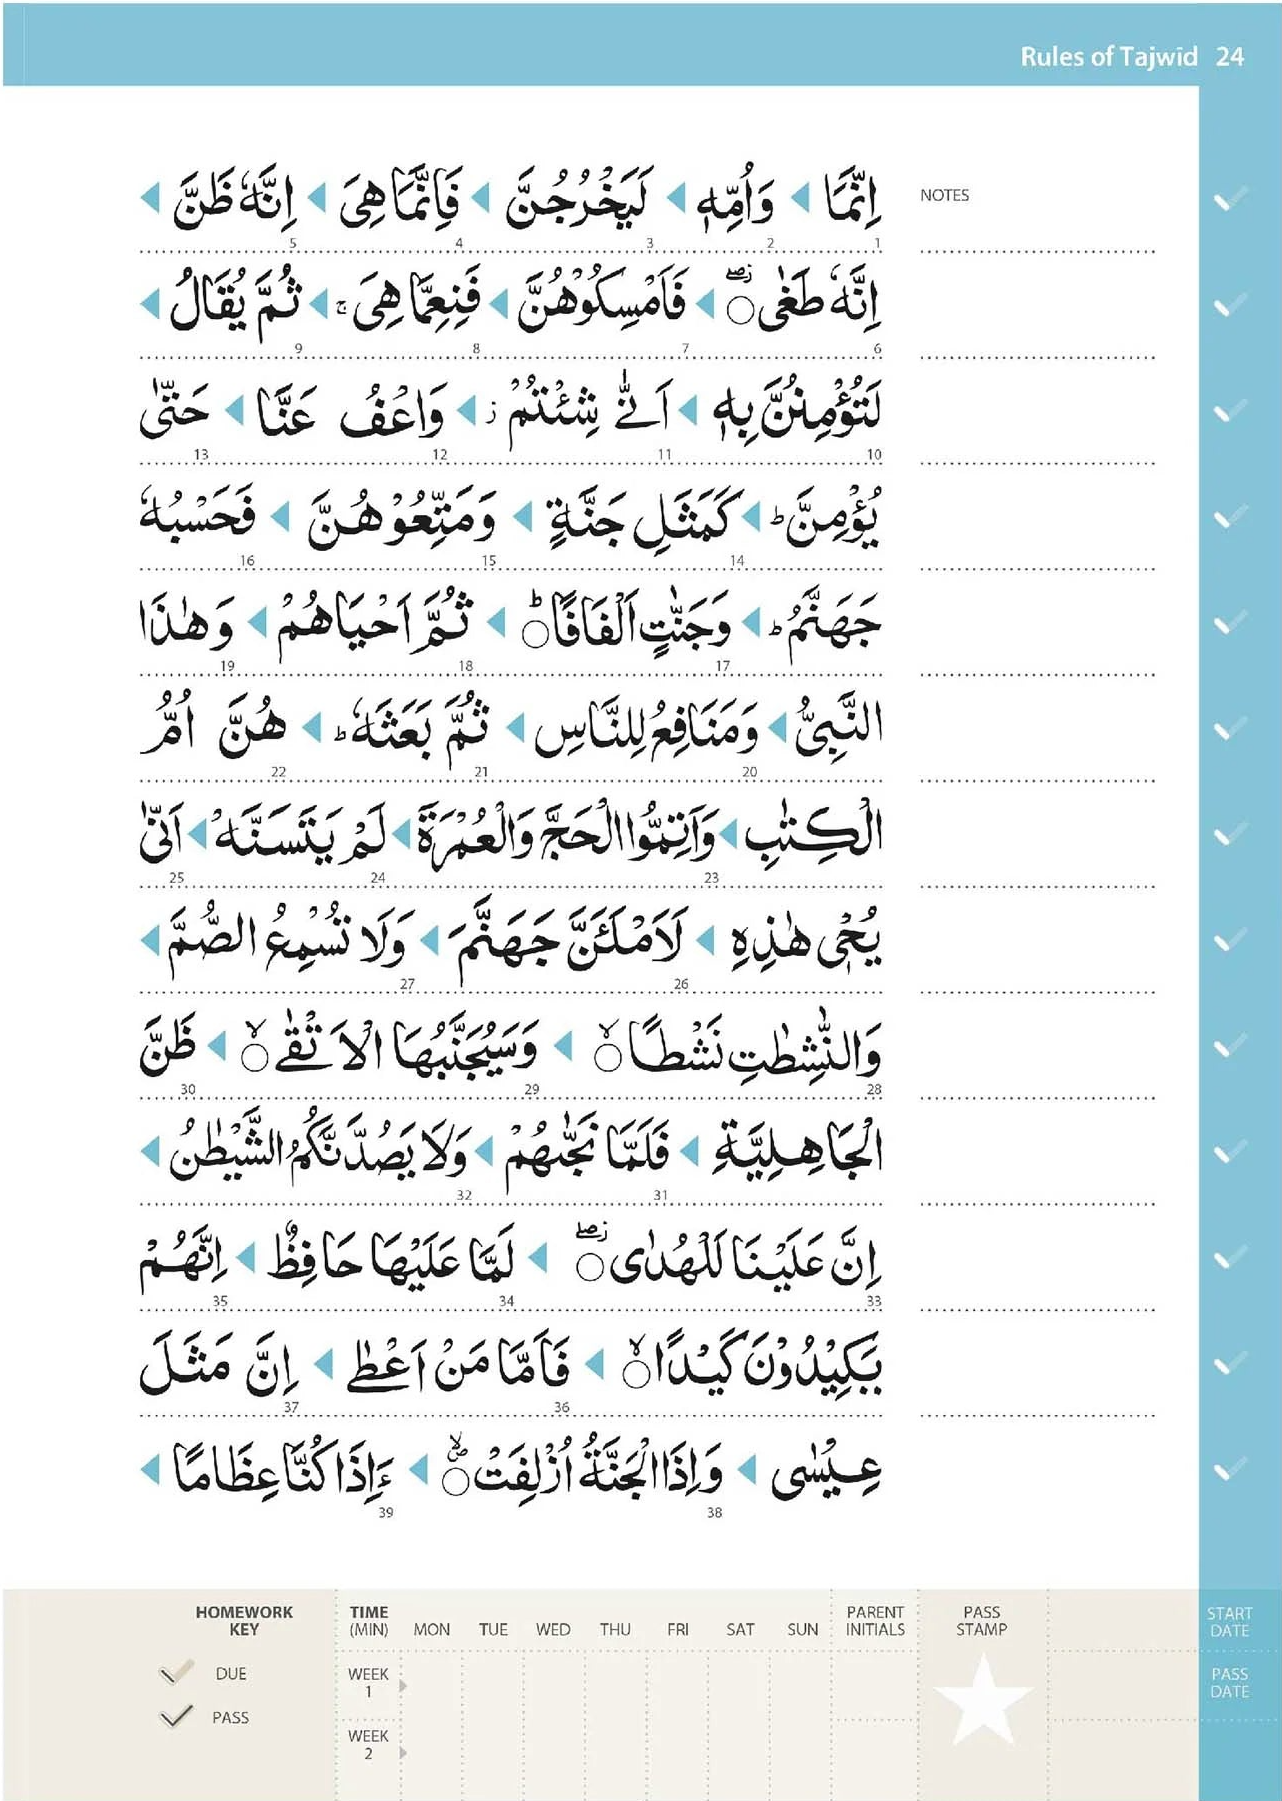 Rules of Tajwīd 24
NOTES
اِنَّمَا ◀ وَاُمِّهٖ ◀ لَيَخْرُجُنَّ ◀ فَاِنَّمَا هِىَ ◀ اِنَّهٗ ظَنَّ ◀
1 2 3 4 5
اِنَّهٗ طَغٰى ۝ۖ ◀ فَاَمْسِكُوْهُنَّ ◀ فَنِعِمَّا هِىَ ۚ ◀ ثُمَّ يُقَالُ ◀
6 7 8 9
لَتُؤْمِنُنَّ بِهٖ ◀ اَنّٰى شِئْتُمْ ز ◀ وَاعْفُ عَنَّا ◀ حَتّٰى
10 11 12 13
يُؤْمِنَّ ؕ ◀ كَمَثَلِ جَنَّةٍ ◀ وَمَتِّعُوْهُنَّ ◀ فَحَسْبُهٗ
14 15 16
جَهَنَّمُ ؕ ◀ وَجَنّٰتٍ اَلْفَافًا ۝ؕ ◀ ثُمَّ اَحْيَاهُمْ ◀ وَهٰذَا
17 18 19
النَّبِىُّ ◀ وَمَنَافِعُ لِلنَّاسِ ◀ ثُمَّ بَعَثَهٗ ؕ ◀ هُنَّ اُمُّ
20 21 22
الْكِتٰبِ ◀ وَاَتِمُّوا الْحَجَّ وَالْعُمْرَةَ ◀ لَمْ يَتَسَنَّهْ ◀ اَنّٰى
23 24 25
يُحْىٖ هٰذِهِ ◀ لَاَمْلَئَنَّ جَهَنَّمَ ◀ وَلَا تُسْمِعُ الصُّمَّ ◀
26 27
وَالنّٰشِطٰتِ نَشْطًا ۝ۙ ◀ وَسَيُجَنَّبُهَا الْاَتْقٰى ۝ۙ ◀ ظَنَّ
28 29 30
الْجَاهِلِيَّةِ ◀ فَلَمَّا نَجّٰىهُمْ ◀ وَلَا يَصُدَّنَّكُمُ الشَّيْطٰنُ ◀
31 32
اِنَّ عَلَيْنَا لَلْهُدٰى ۝ۖ ◀ لَمَّا عَلَيْهَا حَافِظٌ ◀ اِنَّهُمْ
33 34 35
يَكِيْدُوْنَ كَيْدًا ۝ۙ ◀ فَاَمَّا مَنْ اَعْطٰى ◀ اِنَّ مَثَلَ
36 37
عِيْسٰى ◀ وَاِذَا الْجَنَّةُ اُزْلِفَتْ ۝ۙ ◀ ءَاِذَا كُنَّا عِظَامًا ◀
38 39
HOMEWORK KEY
DUE
PASS
TIME (MIN) MON TUE WED THU FRI SAT SUN PARENT INITIALS PASS STAMP START DATE
WEEK 1
PASS DATE
WEEK 2